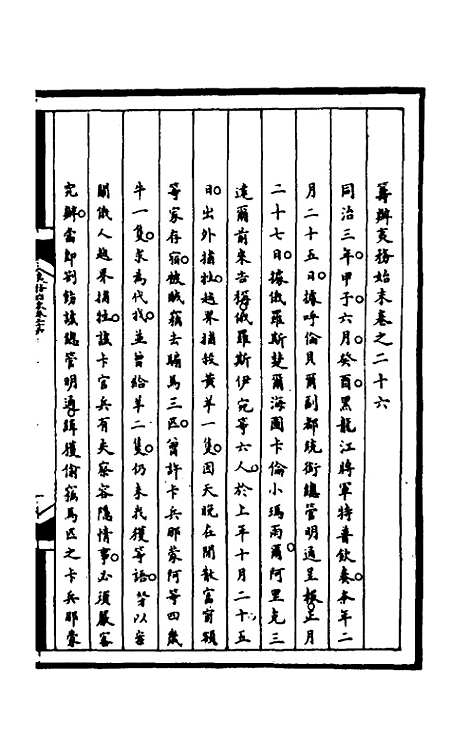 籌辦夷務始末卷之二十六
同治三年。甲子。六月。癸酉。黑龍江將軍特普欽奏。本年二
月二十五日。據呼倫貝爾副都統銜總管明通呈報。正月
二十七日。據俄羅斯楚爾海圖卡倫小瑪雨爾阿里克三
達爾前來告稱。俄羅斯伊宛等六人。於上年十月二十五
日。出外捕牲。越界捕殺黃羊一隻。因天晚在閒散富甯額
等家存宿。被賊竊去騸馬三匹。曾許卡兵那蒙阿等四歲
牛一隻。求為代找。並曾給羊二隻。仍未找獲等語。等以查
關俄人越界捕牲。該卡官兵有失察容隱情事。亟須嚴密
究辦。當即劄飭該總管明通。緝獲偷竊馬匹之卡兵那蒙